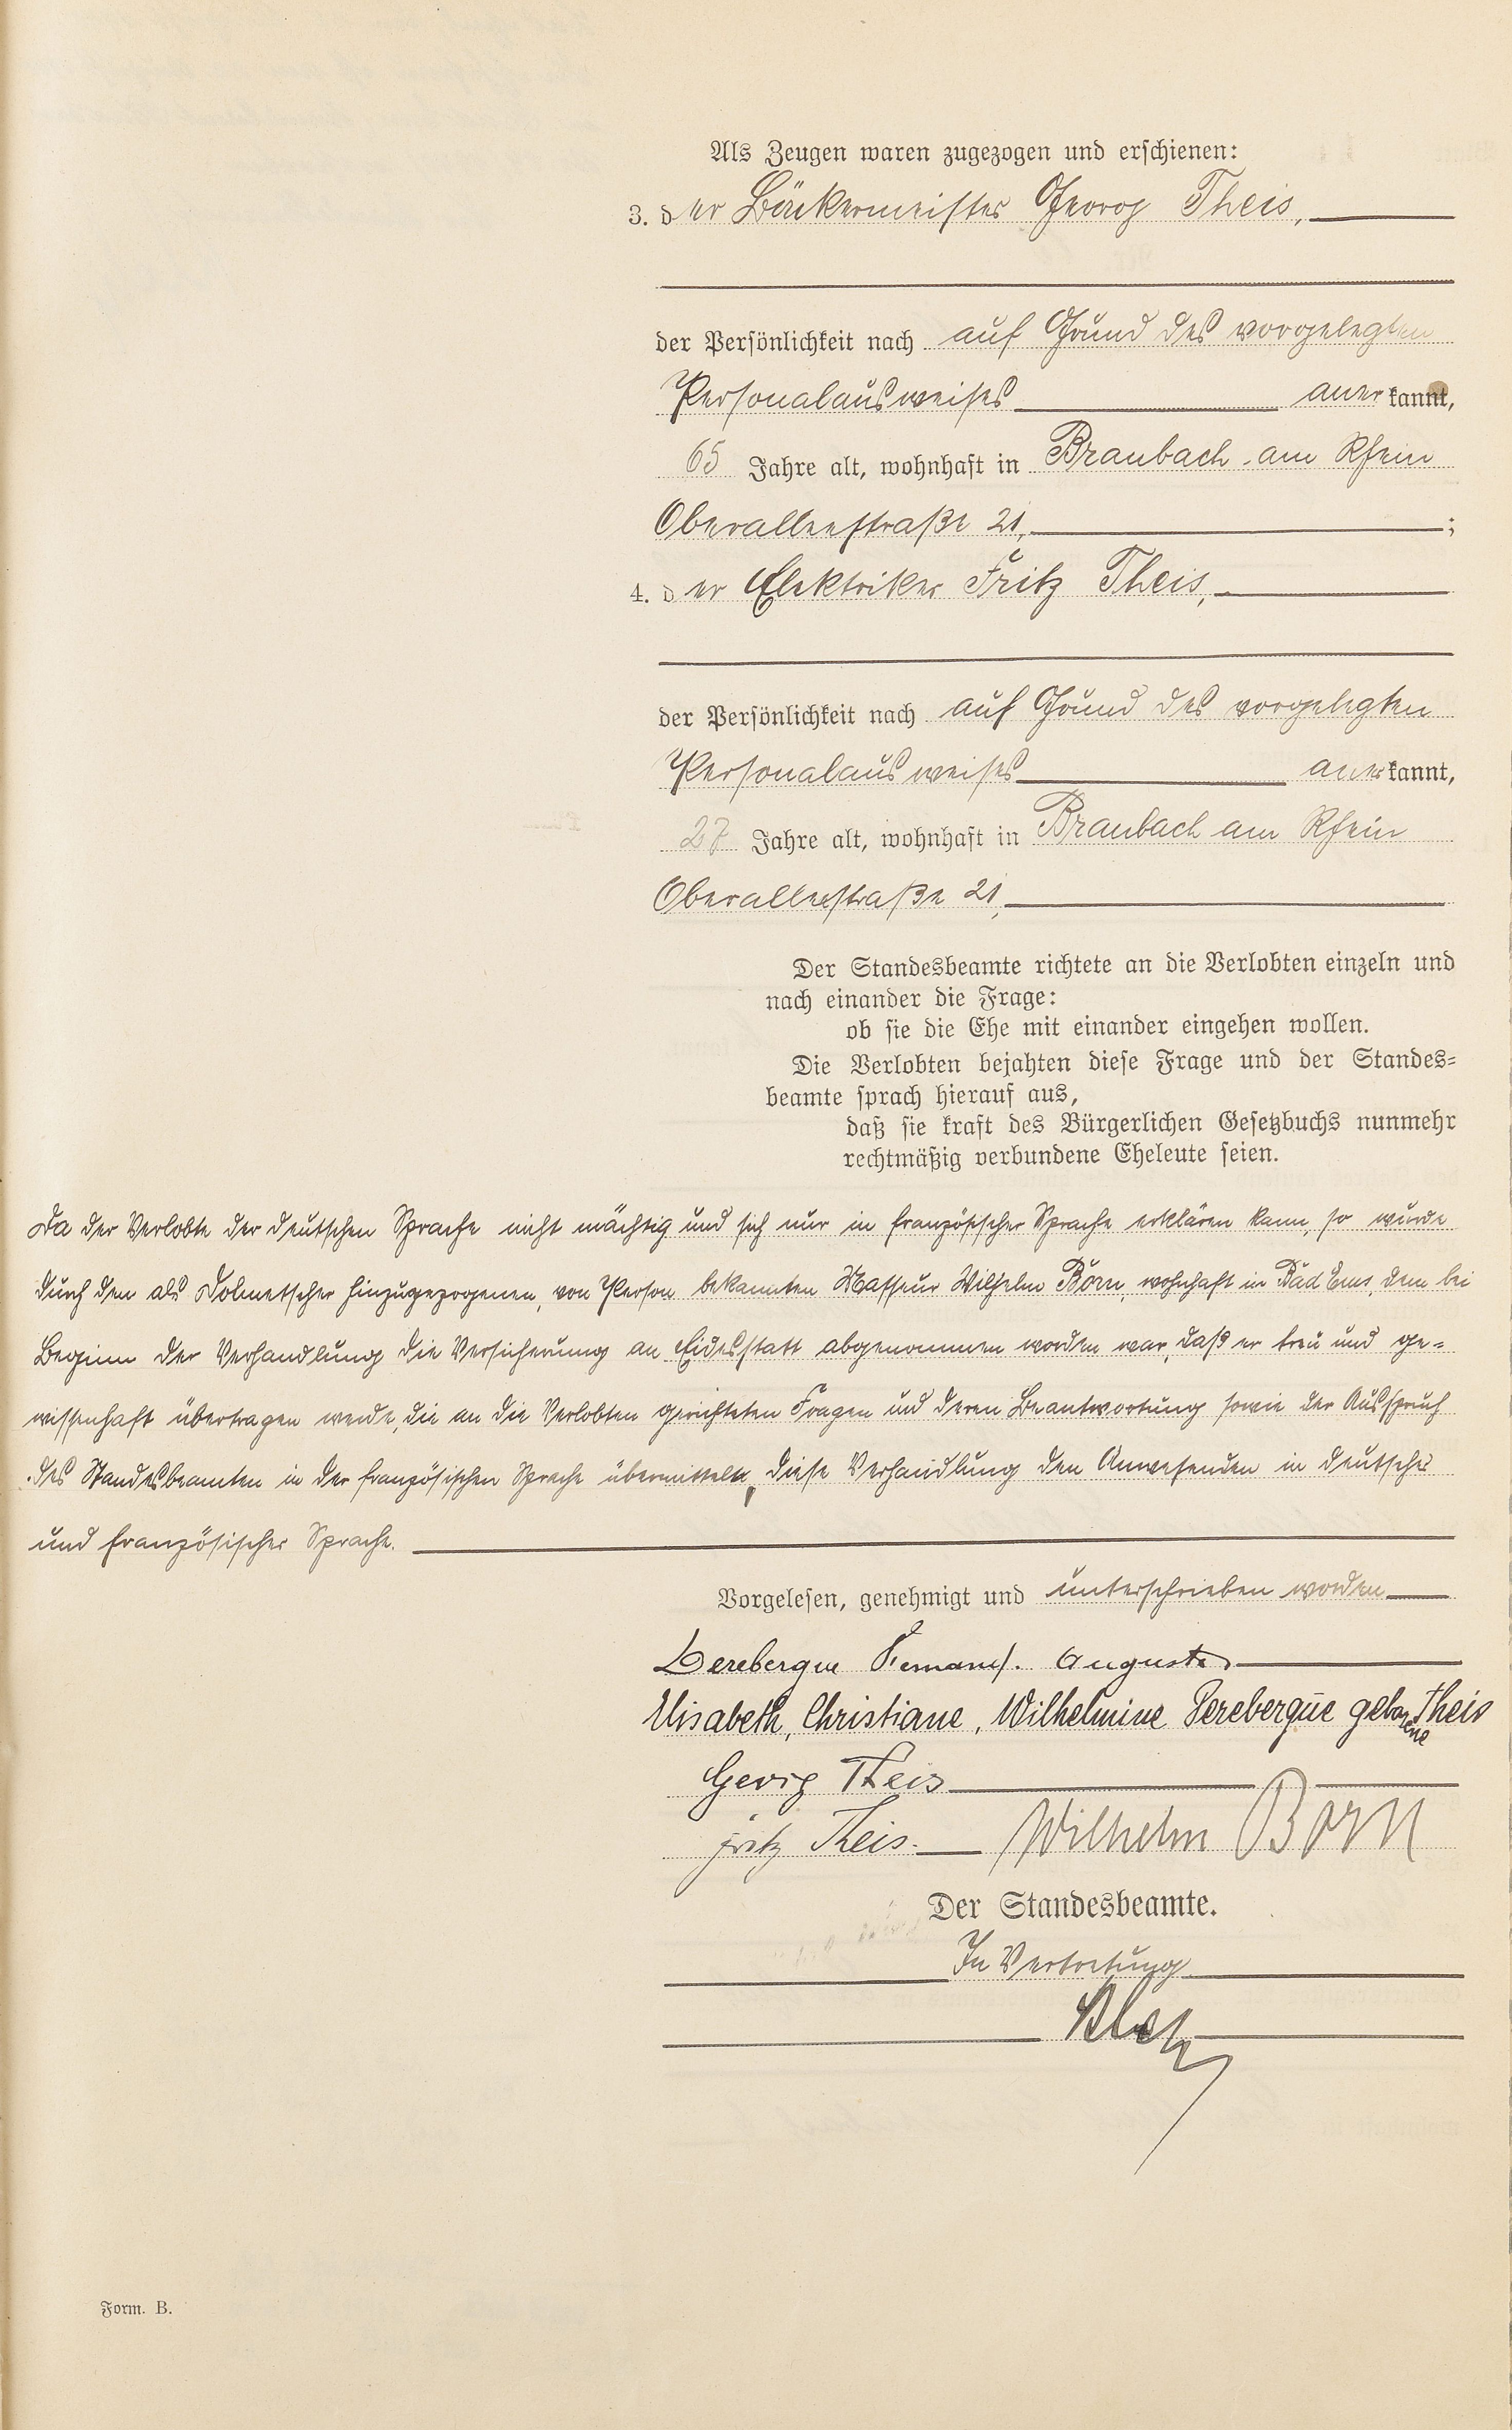 Als Zeugen waren zugezogen und erschienen:
3. der Bäckermeister Georg Theis,
der Persönlichkeit nach auf Grund des vorgelegten
Personalausweises anerkannt,
65 Jahre alt, wohnhaft in Braubach am Rhein
Oberalleestraße 21, ;
4. der Elektriker Fritz Theis,
der Persönlichkeit nach auf Grund des vorgelegten
Personalausweises anerkannt,
27 Jahre alt, wohnhaft in Braubach am Rhein
Oberalleestraße 21,
Der Standesbeamte richtete an die Verlobten einzeln und
nach einander die Frage:
ob sie die Ehe mit einander eingehen wollen.
Die Verlobten bejahten diese Frage und der Standes-
beamte sprach hierauf aus,
daß sie kraft des Bürgerlichen Gesetzbuchs nunmehr
rechtmäßig verbundene Eheleute seien.
Da der Verlobte der deutschen Sprache nicht mächtig und sich nur in französischer Sprache erklären kann, so wurde
durch den als Dolmetscher hinzugezogenen, von Person bekannten Masseur Wilhelm Born, wohnhaft in Bad Ems, dem bei
Beginn der Verhandlung die Versicherung an Eidesstatt abgenommen worden war, daß er treu und ge-
wissenhaft übertragen werde, die an die Verlobten gerichteten Fragen und deren Beantwortung sowie der Ausspruch
des Standesbeamten in der französischen Sprache übermittelt, diese Verhandlung den Anwesenden in deutscher
und französischer Sprache.
Vorgelesen, genehmigt und unterschrieben worden
Dereberque Fernand. Auguste
Elisabeth, Christiane, Wilhelmine Dereberque geborene Theis
Georg Theis
Fritz Theis. Wilhelm Born
Der Standesbeamte.
In Vertretung
Form. B.